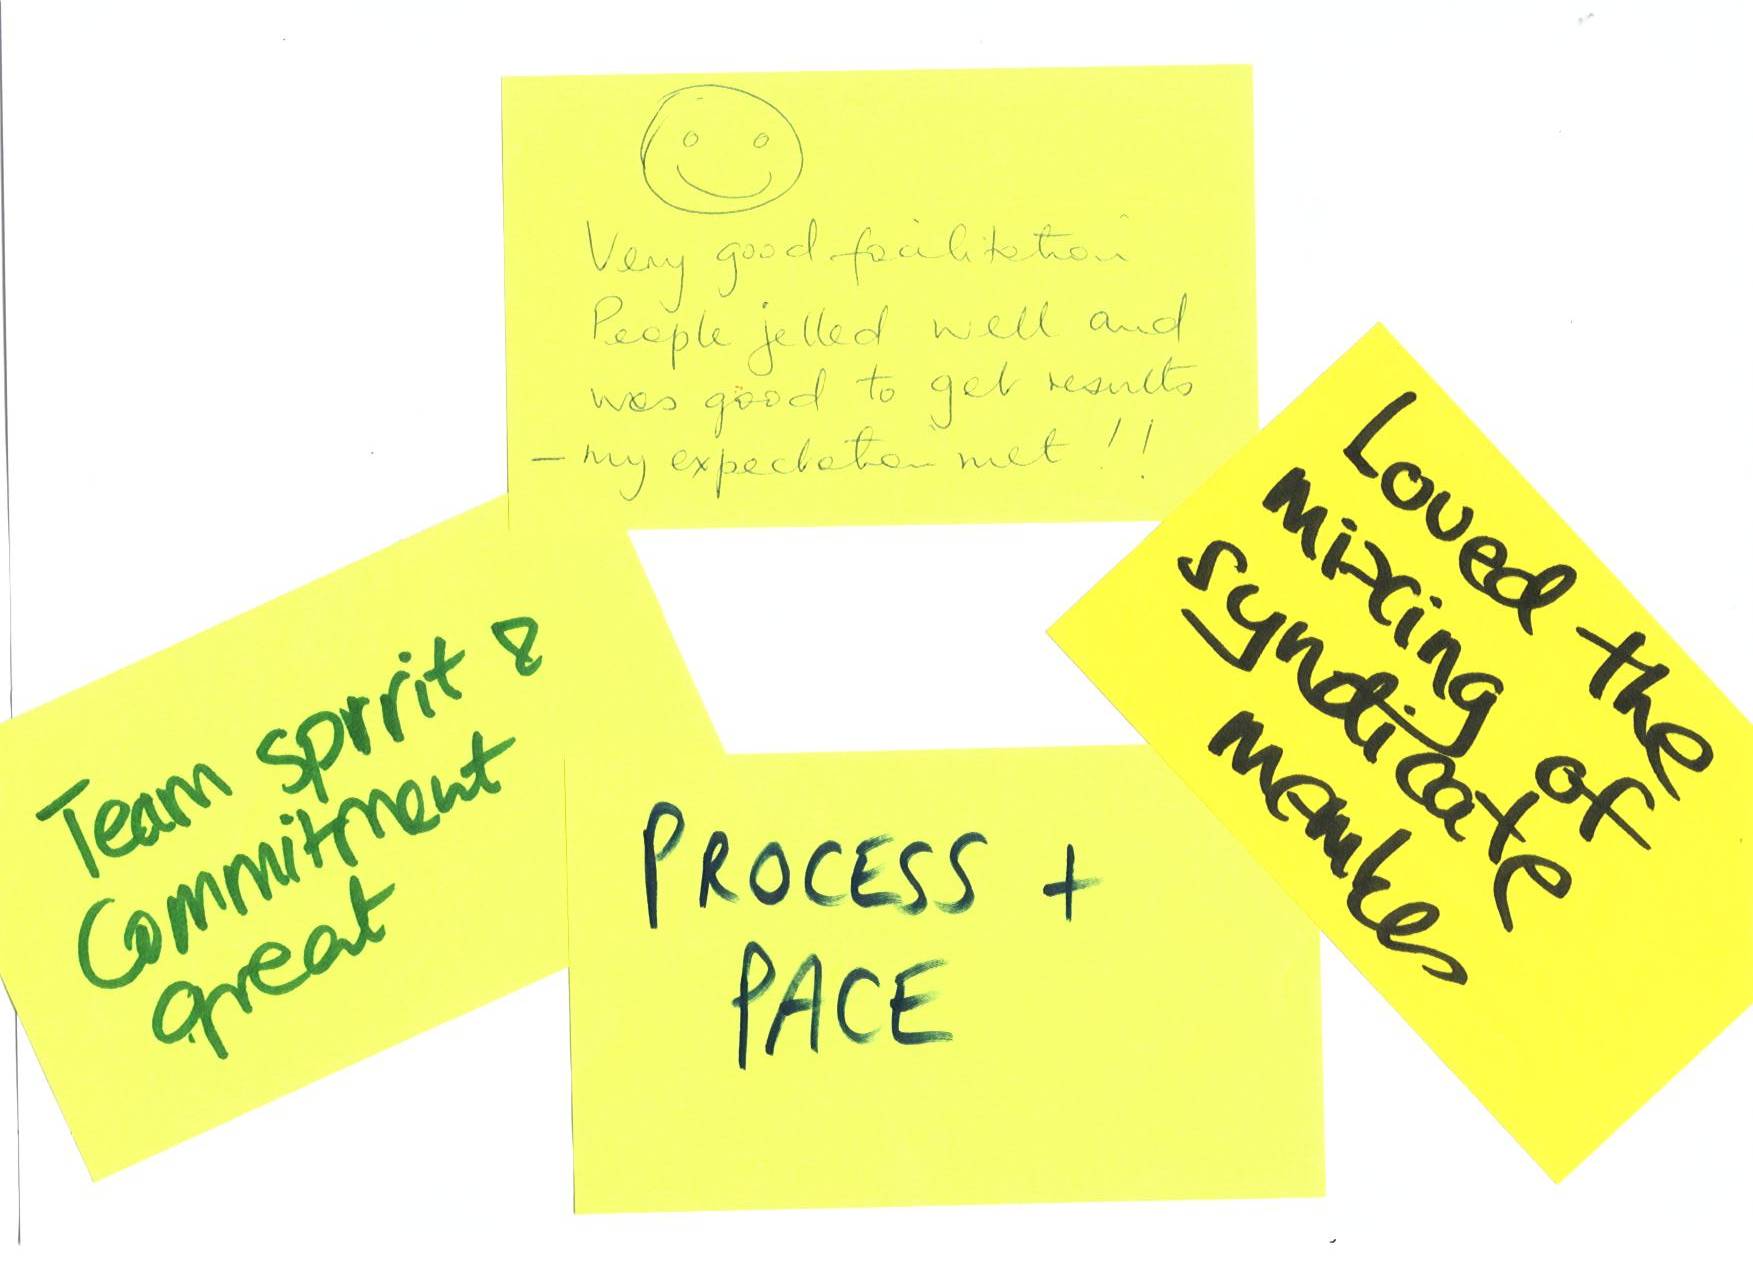 Very good facilitation
People jelled well and
was good to get results
- my expectation met !!
Team spirit &
Commitment
great
PROCESS +
PACE
Loved the
mixing of
syndicate
membes